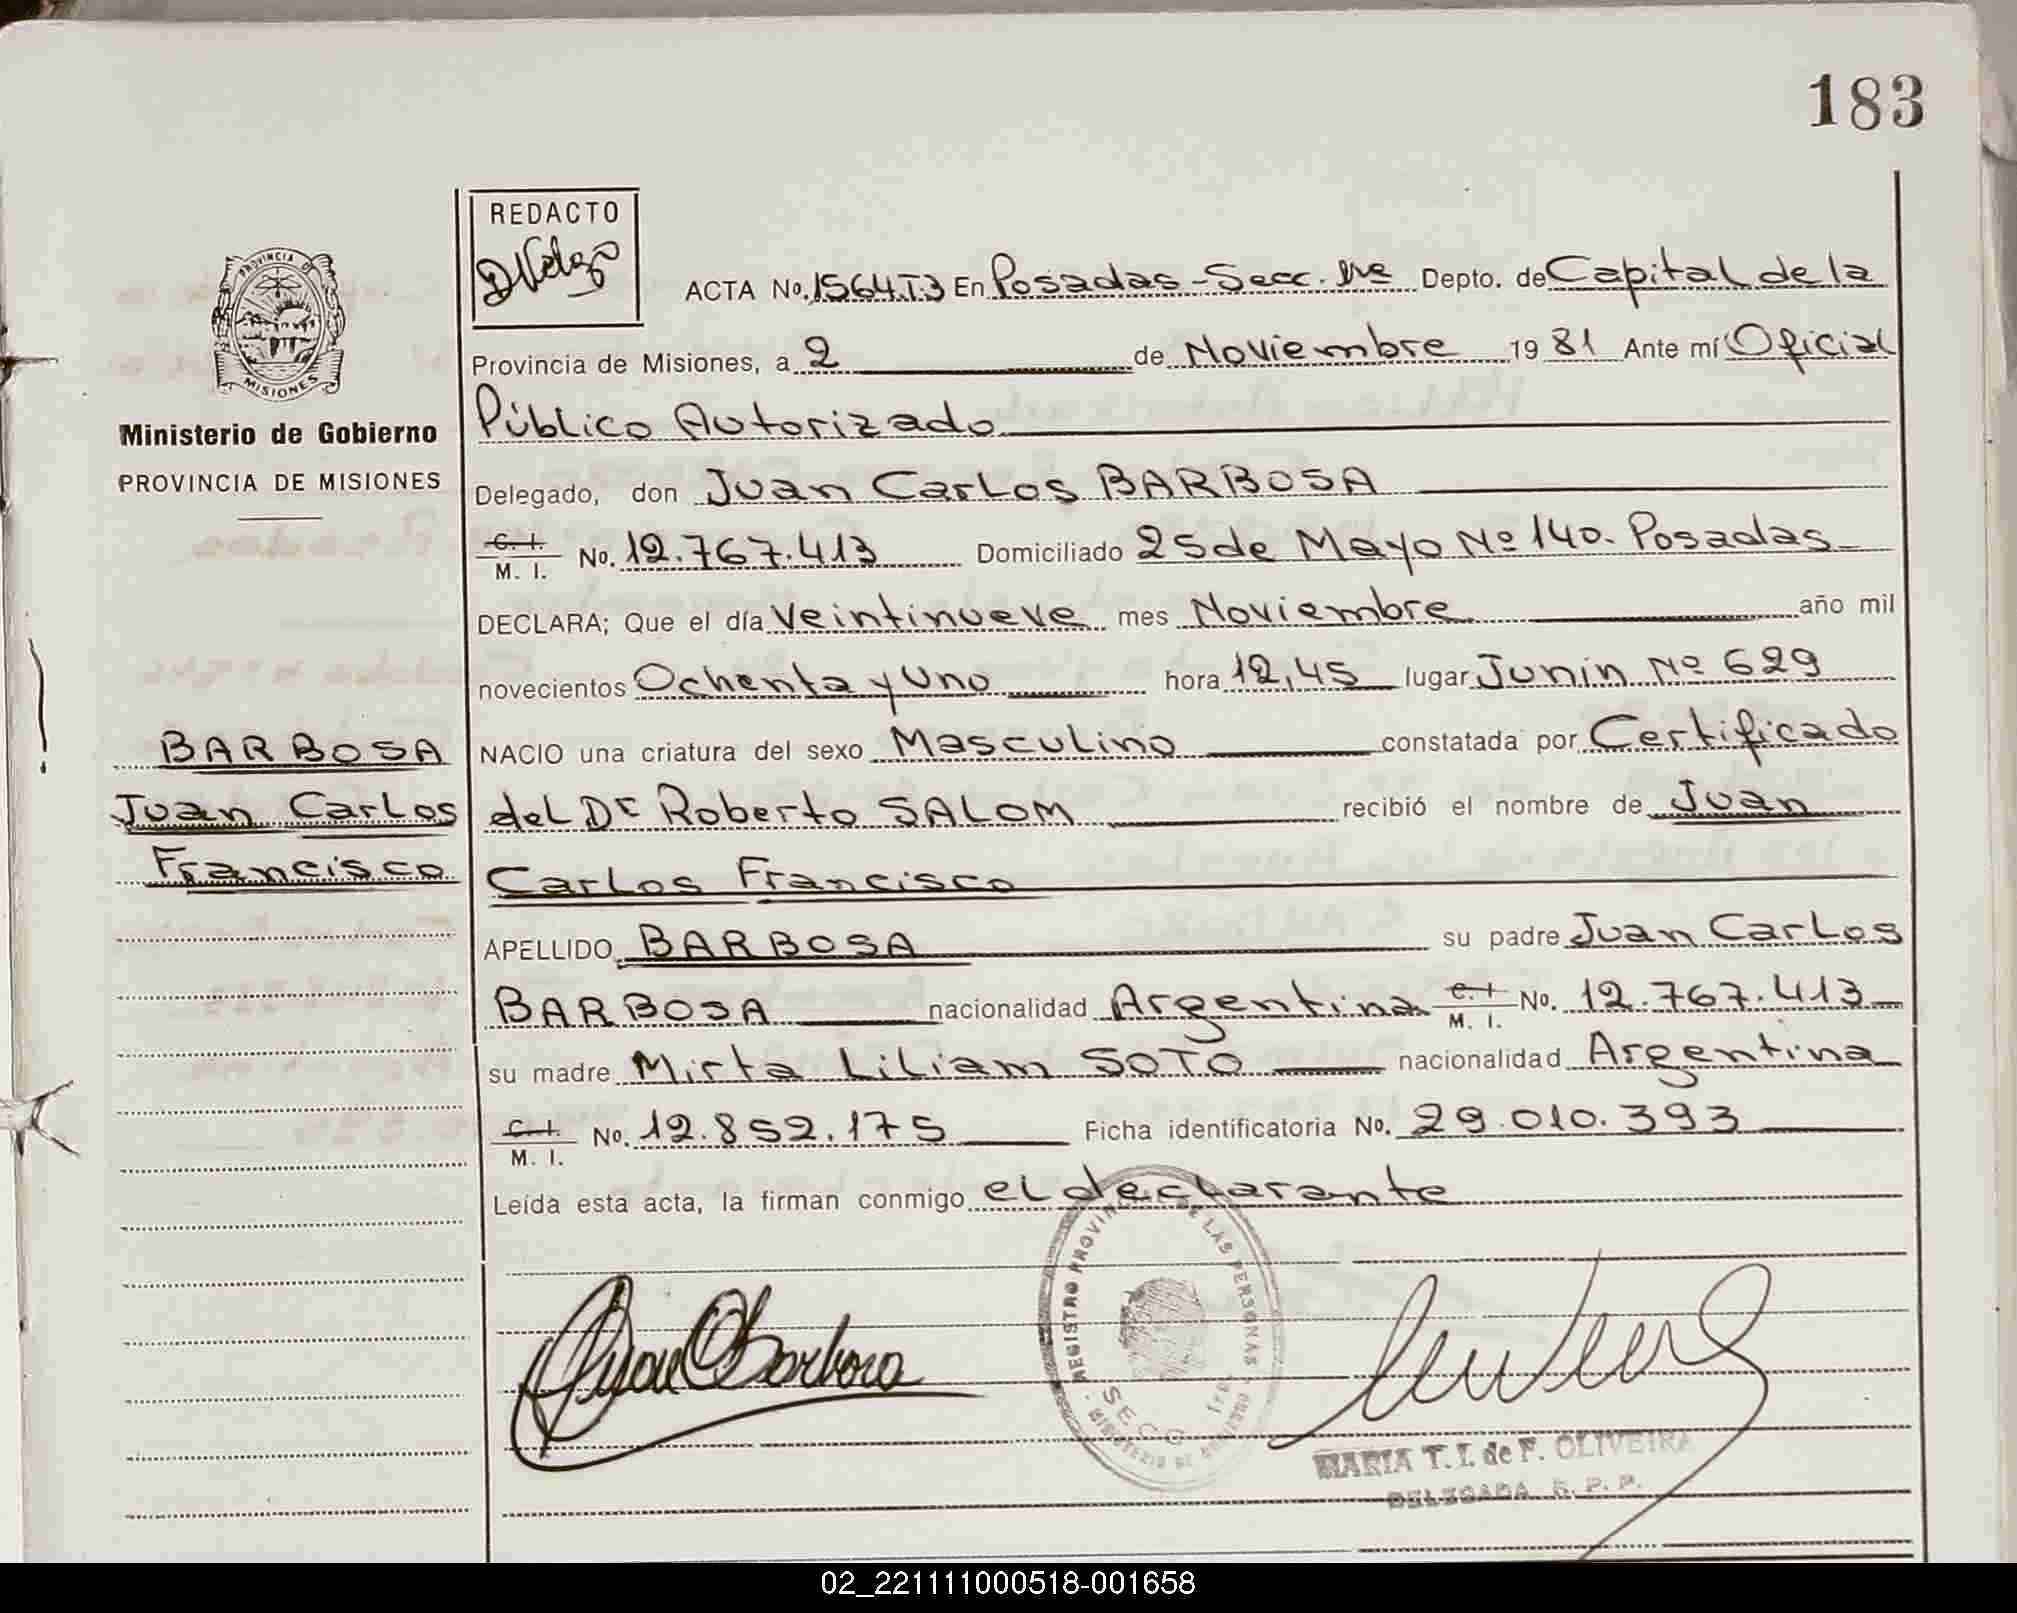 183
REDACTO
PROVINCIA DE
MISIONES
ACTA No. 1564.T3 En Posadas - Secc. 1ra Depto. de Capital de la
Provincia de Misiones, a 2 de Noviembre 1981 Ante mí Oficial
Público Autorizado
Ministerio de Gobierno
PROVINCIA DE MISIONES
Delegado, don Juan Carlos BARBOSA
C. I. M. I. No. 12.767.413 Domiciliado 25 de Mayo Nº 140. Posadas
DECLARA; Que el día Veintinueve mes Noviembre año mil
novecientos Ochenta y Uno hora 12,45 lugar Junín Nº 629
NACIO una criatura del sexo Masculino constatada por Certificado
del Dr Roberto SALOM recibió el nombre de Juan
Carlos Francisco
BARBOSA
Juan Carlos
Francisco
APELLIDO BARBOSA su padre Juan Carlos
BARBOSA nacionalidad Argentina C. I. M. I. No. 12.767.413
su madre Mirta Liliam SOTO nacionalidad Argentina
C. I. M. I. No. 12.852.175 Ficha identificatoria No. 29.010.393
Leída esta acta, la firman conmigo el declarante
REGISTRO PROVIN DE LAS PERSONAS
SECC. 1ra.
MINISTERIO DE GOBIERNO
Juan C Barbosa
MARIA T. I. de F. OLIVEIRA
DELEGADA R. P. P.
02_221111000518-001658